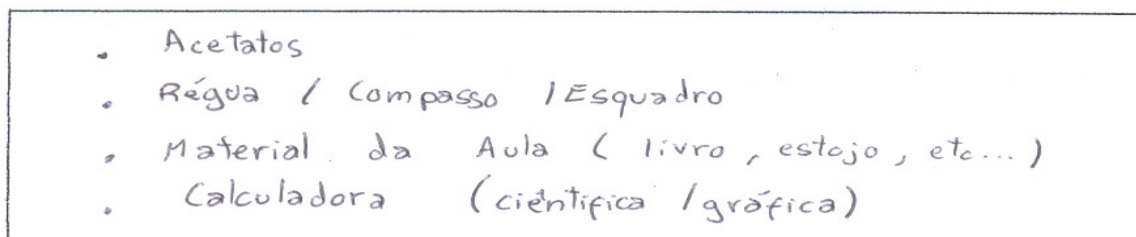 . Acetatos
. Régua / Compasso / Esquadro
. Material da Aula ( livro , estojo , etc... )
. Calculadora (ciêntifica / gráfica)